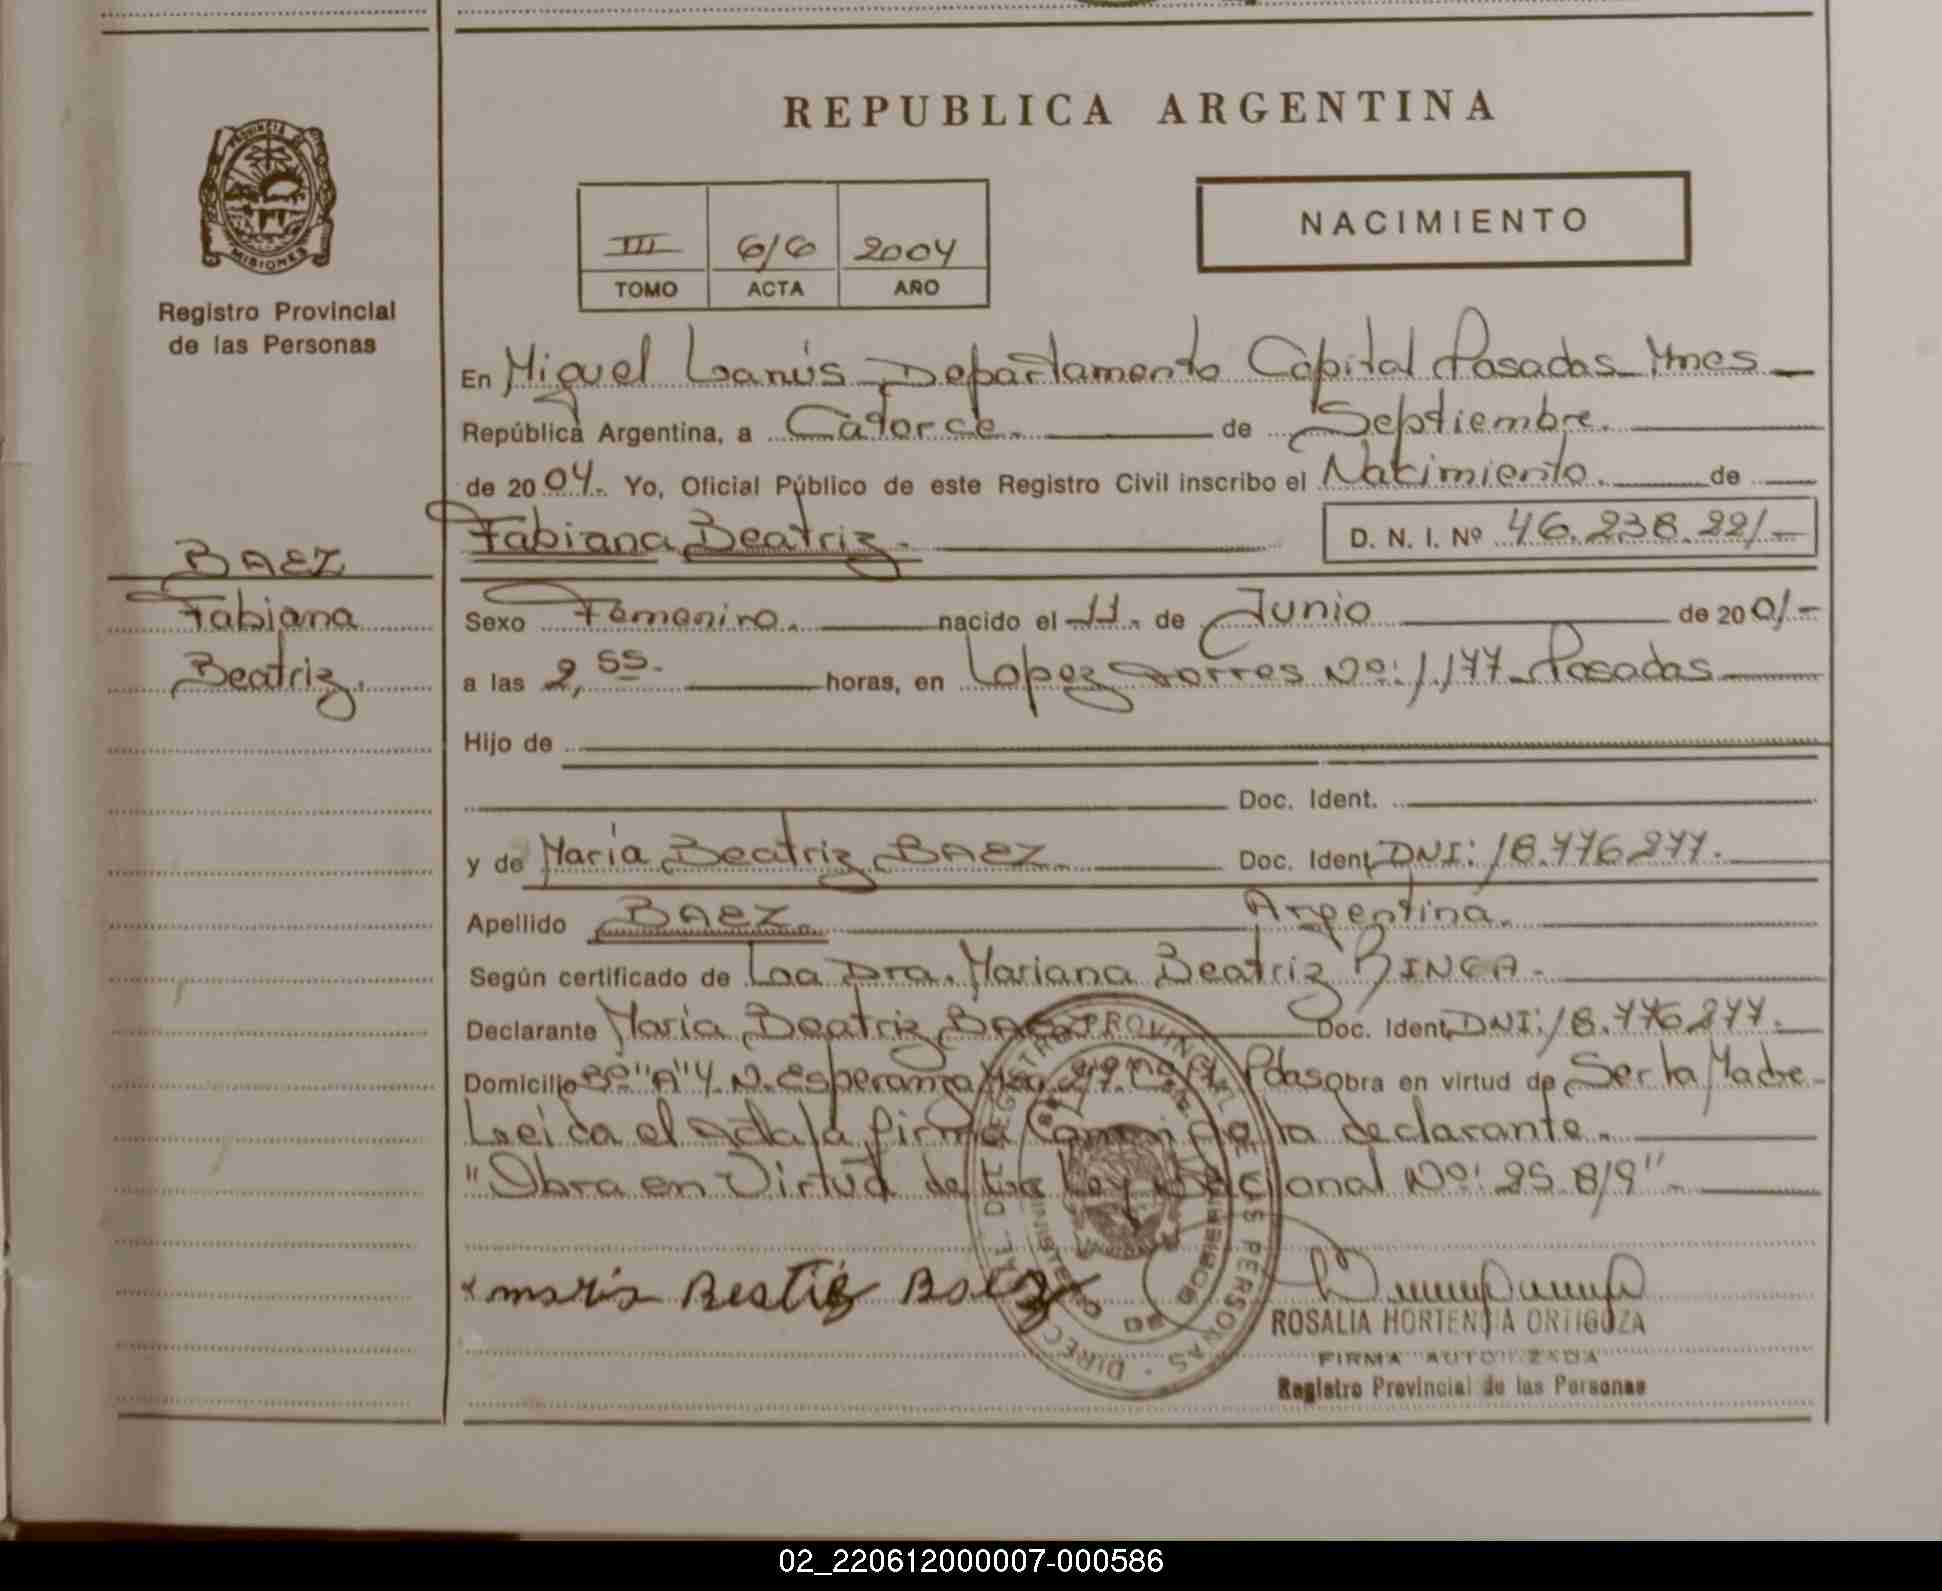 REPUBLICA ARGENTINA
PROVINCIA DE
MISIONES
Registro Provincial
de las Personas
III 6/6 2004
TOMO ACTA AÑO
NACIMIENTO
En Miguel Lanús Departamento Capital Posadas Mnes
República Argentina, a Catorce. de Septiembre.
de 2004. Yo, Oficial Público de este Registro Civil inscribo el Nacimiento. de
Fabiana Beatriz. D. N. I. Nº 46.238.221.-
BAEZ
Fabiana
Beatriz.
Sexo Femenino. nacido el 11. de Junio de 2001.-
a las 2,55. horas, en Lopez Torres Nº: 1.177 Posadas
Hijo de
Doc. Ident.
y de Maria Beatriz BAEZ. Doc. Ident. DNI: 18.776.277.
Apellido BAEZ. Argentina.
Según certificado de Laa Dra. Mariana Beatriz
Declarante Maria Beatriz BAEZ Doc. Ident. DNI: 18.776.277.
Domicilio Bº "A" 4. N. Esperanza Pdas obra en virtud de Ser la Madre-
Leida el Acta la firma la declarante.
"Obra en Virtud de La Ley Nacional Nº: 25.819"
maria Beatriz Baez
DIRECCION GENERAL DEL REGISTRO PROVINCIAL DE LAS PERSONAS
MINISTERIO DE GOBIERNO
ROSALIA HORTENSIA ORTIGOZA
FIRMA AUTORIZADA
Registro Provincial de las Personas
02_220612000007-000586